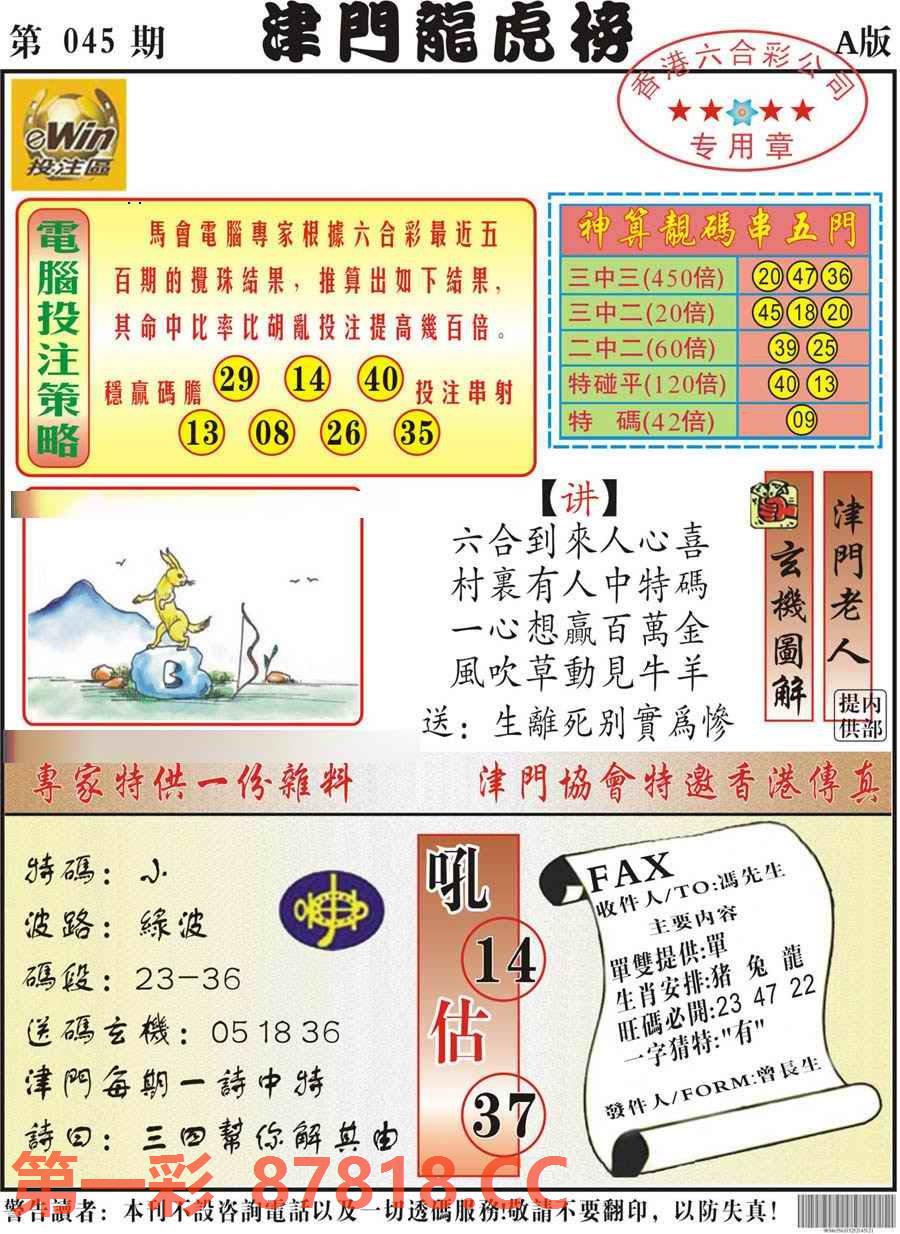 第 045 期
津門龍虎榜
A版
香港六合彩公司
专用章
eWin
投注區
電腦投注策略
馬會電腦專家根據六合彩最近五
百期的攪珠結果，推算出如下結果，
其命中比率比胡亂投注提高幾百倍。
穩贏碼膽 29 14 40 投注串射
13 08 26 35
神算靚碼串五門
三中三(450倍) 20 47 36
三中二(20倍) 45 18 20
二中二(60倍) 39 25
特碰平(120倍) 40 13
特 碼(42倍) 09
B
【讲】
六合到來人心喜
村裏有人中特碼
一心想贏百萬金
風吹草動見牛羊
送：生離死别實爲慘
玄機圖解
津門老人
内部提供
專家特供一份雜料
津門協會特邀香港傳真
特碼：小
波路：綠波
碼段：23-36
送碼玄機：05 18 36
津門每期一詩中特
詩曰：三四幫你解其由
吼
14
估
37
FAX
收件人/TO:馮先生
主要内容
單雙提供:單
生肖安排:猪 兔 龍
旺碼必開:23 47 22
一字猜特:"有"
發件人/FORM:曾長生
第一彩 87818.CC
警告讀者：本刊不設咨詢電話以及一切透碼服務!敬請不要翻印，以防失真！